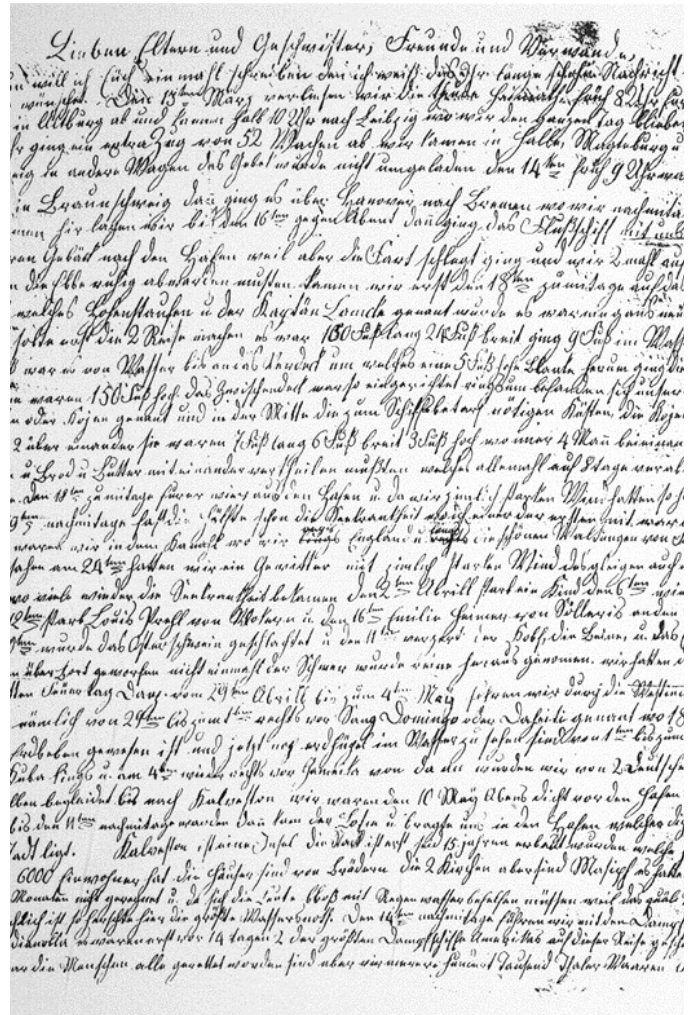 Lieben Eltern und Geschwister, Freunde und Verwande,
will ich Euch einmahl schreiben den ich weiß das Ihr lange schon Nachricht
wünschet. Den 13ten März verliesen wir die Heimath früh 8 Uhr
in Altburg ab und kamen halb 10 Uhr nach Leibzig wo wir den ganzen tag blieben
ging ein extra Zug von 52 Wachen ab wir kamen in Halle, Magteburg u
in andere Wagen das Gebek wurde nicht umgeladen den 14ten früh 9 Uhr
in Braunschweig dan ging es über Hanover nach Bremen wo wir nachmita
hir lachen wir bis den 16ten gegen Abent dann ging das Flußschiff mit uns
Gebäck nach den Hafen weil aber die Fart schlegt ging und wir 2 mahl auf
die Ebbe ruhig abwarden musten kamen wir erst den 18ten zu mitage auf das
welches Hohenstaufen u der Kapitän genant wurde es war ein ganz neu
erst die 2 Reise machen es war 150 Fuß lang 21 Fuß breit ging 9 Fuß im Wass
war es von Wasser bis an das Verdeck um welches eine 5 Fuß hohe Blanke herum ging die
waren 150 Fuß hoch das Zwischendeck war so eingerichtet ringsum befanden sich unsere
oder Kojen genant und in der Mitte die zum Schiffsbeterf nötigen Kisten, die Kojen
2 über einander sie waren 7 Fuß lang 6 Fuß breit 3 Fuß hoch wo imer 4 Man beieinan
u Brod u Butter mit einander vertheilen mußten welches allemahl auf 8 tage verab
Den 18ten zu mitage furen wier aus den Hafen u da wir zimlich starken Wind hatten so
nachmitage hast die Hälfte schon die Seekrankheit wo ich einer der ersten mit war
waren wir in dem Kanahl wo wir England u die schönen Waldungen von
sahen am 24ten hatten wir ein Gewitter mit zimlich starken Wind desgleigen auch
wo viele wieder die Seekrankheit bekamen den 2ten Abrill starb ein Kind den 6ten wie
starb Louis Prehl von Mokern u den 16ten Emilie Heimer von Sölleris an den
wurde das Osterschwein geschlachtet u den 11ten verzert der Kobf, die Beine, u das
über Bort geworfen nicht einmahl der Schmer wurde reine heraus genomen. wir hatten
Feuertag vom 29ten Abrill bis zum 4ten May fuhren wir durch die Westind
nämlich von 29ten bis zum 1ten rechts vor Sang Domingo oder Daheiti genant wo 18
Erdbeben gewesen ist und jetzt noch erdhügel im Wasser zu sehen sind von 1ten bis zum
Kuba lings u am 4ten wieder rechts vor Jameika von da an wurden wir von 2 Deutsche
begleidet bis nach Kalveston wir waren den 10 May Abens dicht vor den Hafen
bis den 11ten nachmitage warden dan kam der Lotse u bragte uns in den Hafen welcher
ligt. Kalveston ist eine Insel die Stadt ist erst seid 15 jahren erbaut wurden welche
6000 Einwohner hat die Häuser sind von Brädern die 2 Kirchen aber sind Masif es hatte
Monaten nicht geregnet u. da sich die Leute bloß mit Regenwasser behelfen müssen weil das
ist so herschte hier die größte Wassersnoth. Den 14ten nachmitage fuhren wir mit den Dampf
es waren erst vor 14 tagen 2 der größten Dampfschiffe Amerikas auf dieser Reise
die Menschen alle gerettet worden sind aber vir mehrere Hundert Tausend Thaler Waaren